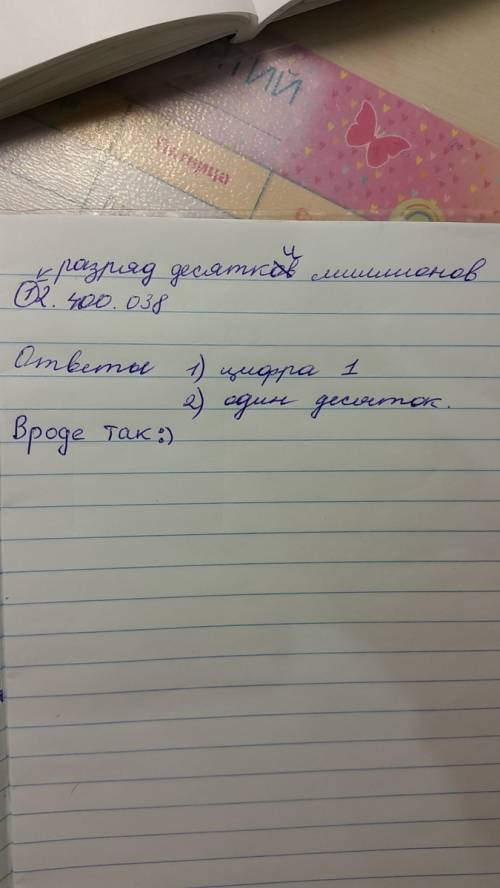 ИЙ
Пятница
разряд десятки миллионов
12.400.038
Ответы 1) цифра 1
2) один десяток.
Вроде так:)